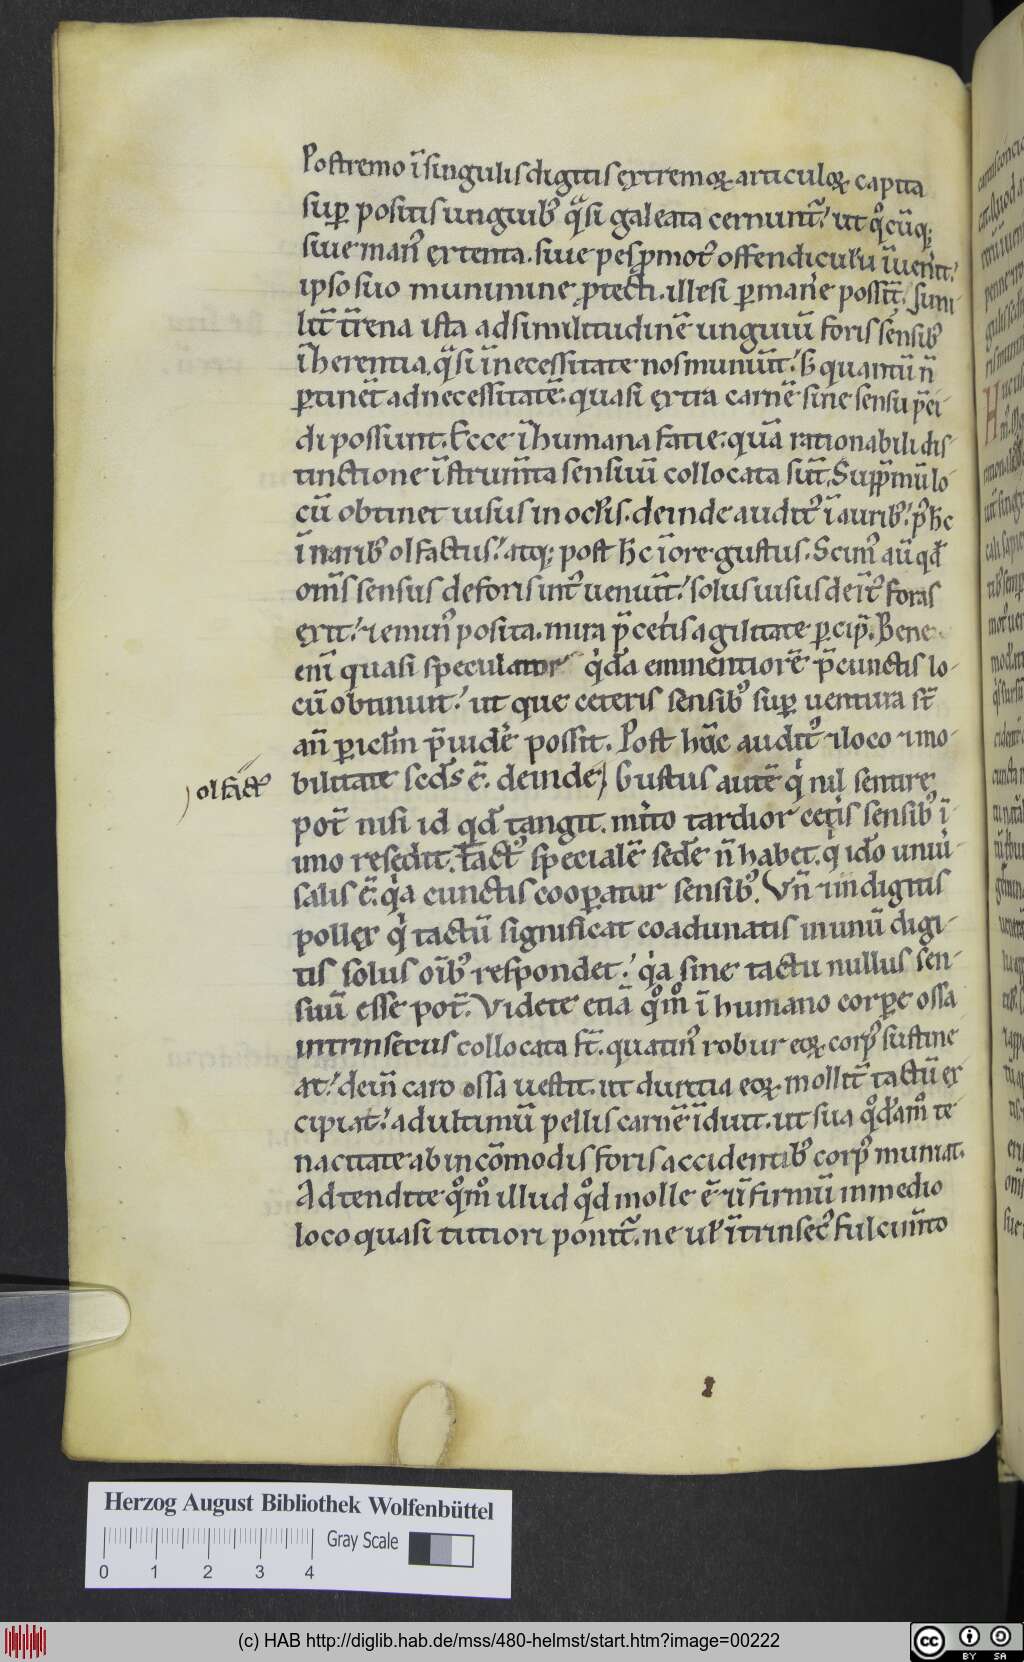 Postremo ī singulis digitis extremoꝝ articuloꝝ capita
suꝑ positis unguibꝰ q̄si galeata cernunt᷑ ut qͦcūq;
siue manꝰ extenta. siue pes ꝓmotꝰ offendiculū īueńit.
ipso suo munimine ꝓtecti. illesi ꝑmaneͬ possīt. Simi
lit̄ t̄rena ista ad similitudinē unguiū foris sensibꝰ
īherentia. q̄si ī necessitate nos muniūt. s; quantū n̄
ꝑtinēt ad necessitatē. quasi extra carnē sine sensu p̄ci
di possunt. Ecce ī humana facie. quā rationabili dis
tinctione īstrum̄ta sensuū collocata sūt. Supp̄mū lo
cū obtinet uisus in oclis. deinde auditꝰ ī auribꝰ. p̉ hc
ī naribꝰ olfactus. atq; post hc ī ore gustus. Scimꝰ aū qd̄
om̄s sensus deforis intꝰ ueniūt. solus uisus deītꝰ foras
exit. ⁊ eminꝰ posita. mira p̄ cet̉is agilitate ꝑcip̄. Bene
enī quasi speculator qⁱdā eminentiorē p̄ cunctis lo
cū obtinuit. ut que ceteris sensibꝰ suꝑ uentura st̄
an̄ ꝑiclm̄ p̄uideͬ possit. Post huc auditꝰ ⁊ loco ⁊ mo
olfactꝰ
bilitate scds ē. deinde Gustus autē qⁱ nil sentire
pot̄ nisi id qd̄ tangit. m̉ito tardior cet̉is sensibꝰ ī
imo resedit. Tactꝰ specialē sedē n̄ habet. q̉ ido uniū
salis ē. qⁱa cunctis cooꝑatur sensibꝰ. Vn̄ ⁊ in digitis
pollex qⁱ tactū significat coadunatis in unū digi
tis solus oībꝰ respondet. qⁱa sine tactu nullus sen
suū esse pot̄. Videte etiā qͦmͦ ī humano corꝑe ossa
intrinsecus collocata st̄. quatinꝰ robur eoꝝ corpꝰ sustine
at. dein̄ caro ossa uestit. ut duritia eoꝝ mollit̄ tactū ex
cipiat. ad ultimū pellis carnē īduit. ut sua qͦdamͦ te
nacitate ab incōmodis foris accidentibꝰ corpꝰ muniat.
Adtendite qͦmͦ illud qͦd molle ē ⁊ īfirmū in medio
loco quasi tutiori ponit᷑. ne ul̉ ītrinsecꝰ fulcim̄to
Herzog August Bibliothek Wolfenbüttel
Gray Scale
0 1 2 3 4
(c) HAB http://diglib.hab.de/mss/480-helmst/start.htm?image=00222
cc BY SA